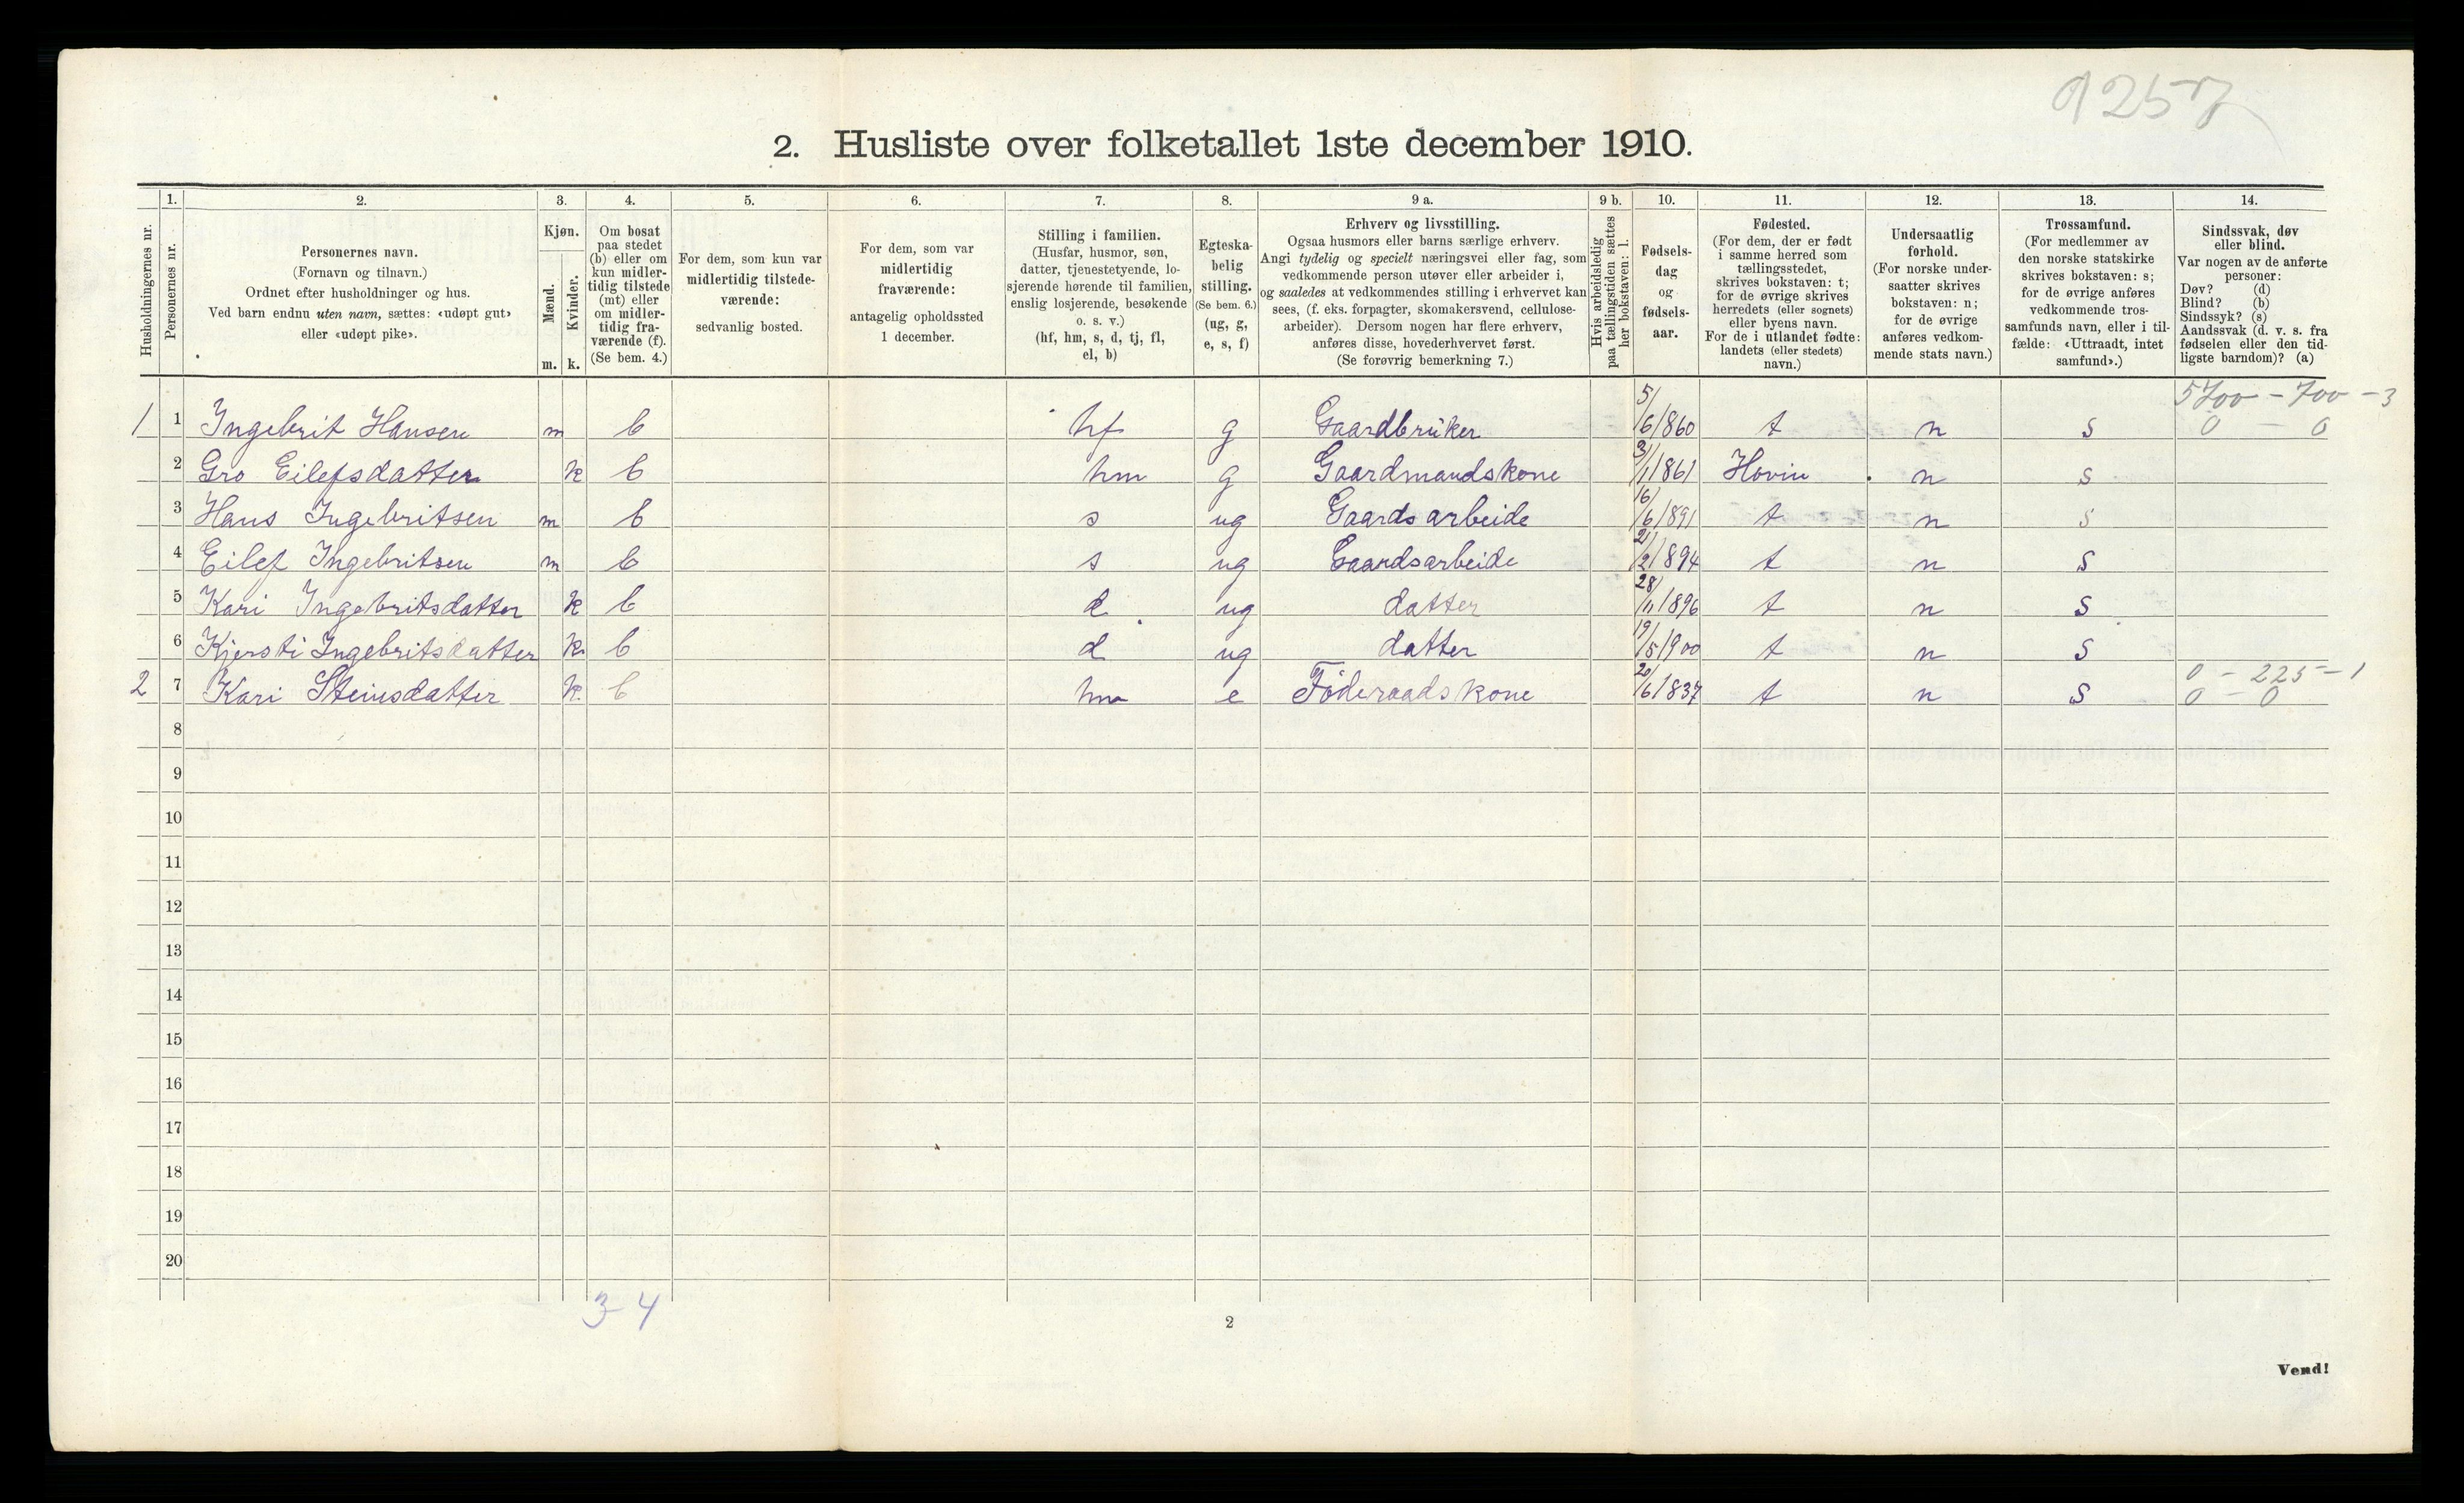 9257
2. Husliste over folketallet 1ste december 1910.
1. 2. 3. 4. 5. 6. 7. 8. 9 a. 9 b. 10. 11. 12. 13. 14.
Husholdningernes nr.
Personernes nr.
Personernes navn.
(Fornavn og tilnavn.)
Ordnet efter husholdninger og hus.
Ved barn endnu uten navn, sættes: «udøpt gut»
eller «udøpt pike».
Kjøn.
Mænd.
Kvinder.
m. k.
Om bosat
paa stedet
(b) eller om
kun midler-
tidig tilstede
(mt) eller
om midler-
tidig fra-
værende (f).
(Se bem. 4.)
For dem, som kun var
midlertidig tilstede-
værende:
sedvanlig bosted.
For dem, som var
midlertidig
fraværende:
antagelig opholdssted
1 december.
Stilling i familien.
(Husfar, husmor, søn,
datter, tjenestetyende, lo-
sjerende hørende til familien,
enslig losjerende, besøkende
o. s. v.)
(hf, hm, s, d, tj, fl,
el, b)
Egteska-
belig
stilling.
(Se bem. 6.)
(ug, g,
e, s, f)
Erhverv og livsstilling.
Ogsaa husmors eller barns særlige erhverv.
Angi tydelig og specielt næringsvei eller fag, som
vedkommende person utøver eller arbeider i,
og saaledes at vedkommendes stilling i erhvervet kan
sees, (f. eks. forpagter, skomakersvend, cellulose-
arbeider). Dersom nogen har flere erhverv,
anføres disse, hovederhvervet først.
(Se forøvrig bemerkning 7.)
Hvis arbeidsledig
paa tællingstiden sættes
her bokstaven: l.
Fødsels-
dag
og
fødsels-
aar.
Fødested.
(For dem, der er født
i samme herred som
tællingsstedet,
skrives bokstaven: t;
for de øvrige skrives
herredets (eller sognets)
eller byens navn.
For de i utlandet fødte:
landets (eller stedets)
navn.)
Undersaatlig
forhold.
(For norske under-
saatter skrives
bokstaven: n;
for de øvrige
anføres vedkom-
mende stats navn.)
Trossamfund.
(For medlemmer av
den norske statskirke
skrives bokstaven: s;
for de øvrige anføres
vedkommende tros-
samfunds navn, eller i til-
fælde: «Uttraadt, intet
samfund».)
Sindssvak, døv
eller blind.
Var nogen av de anførte
personer:
Døv? (d)
Blind? (b)
Sindssyk? (s)
Aandssvak (d. v. s. fra
fødselen eller den tid-
ligste barndom)? (a)
5700 - 700 - 3
1 1 Ingebrit Hansen m b hf g Gaardbruker 5/6 1860 t n s 0 - 0
2 Gro Eilefsdatter k b hm g Gaardmandskone 3/1 1861 Hovin n s
3 Hans Ingebritsen m b s ug Gaardsarbeide 16/6 1891 t n s
4 Eilef Ingebritsen m b s ug Gaardsarbeide 21/2 1894 t n s
5 Kari Ingebritsdatter k b d ug datter 28/11 1896 t n s
6 Kjersti Ingebritsdatter k. b d ug datter 19/5 1900 t n s
0 - 225 - 1
2 7 Kari Steinsdatter k. b hm e Föderaadskone 20/6 1837 t n s 0 - 0
8
9
10
11
12
13
14
15
16
17
18
19
20
3 - 4
2
Vend!